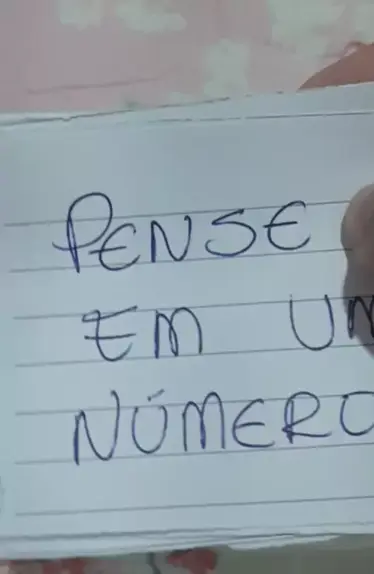 PENSE
EM UM
NÚMERO